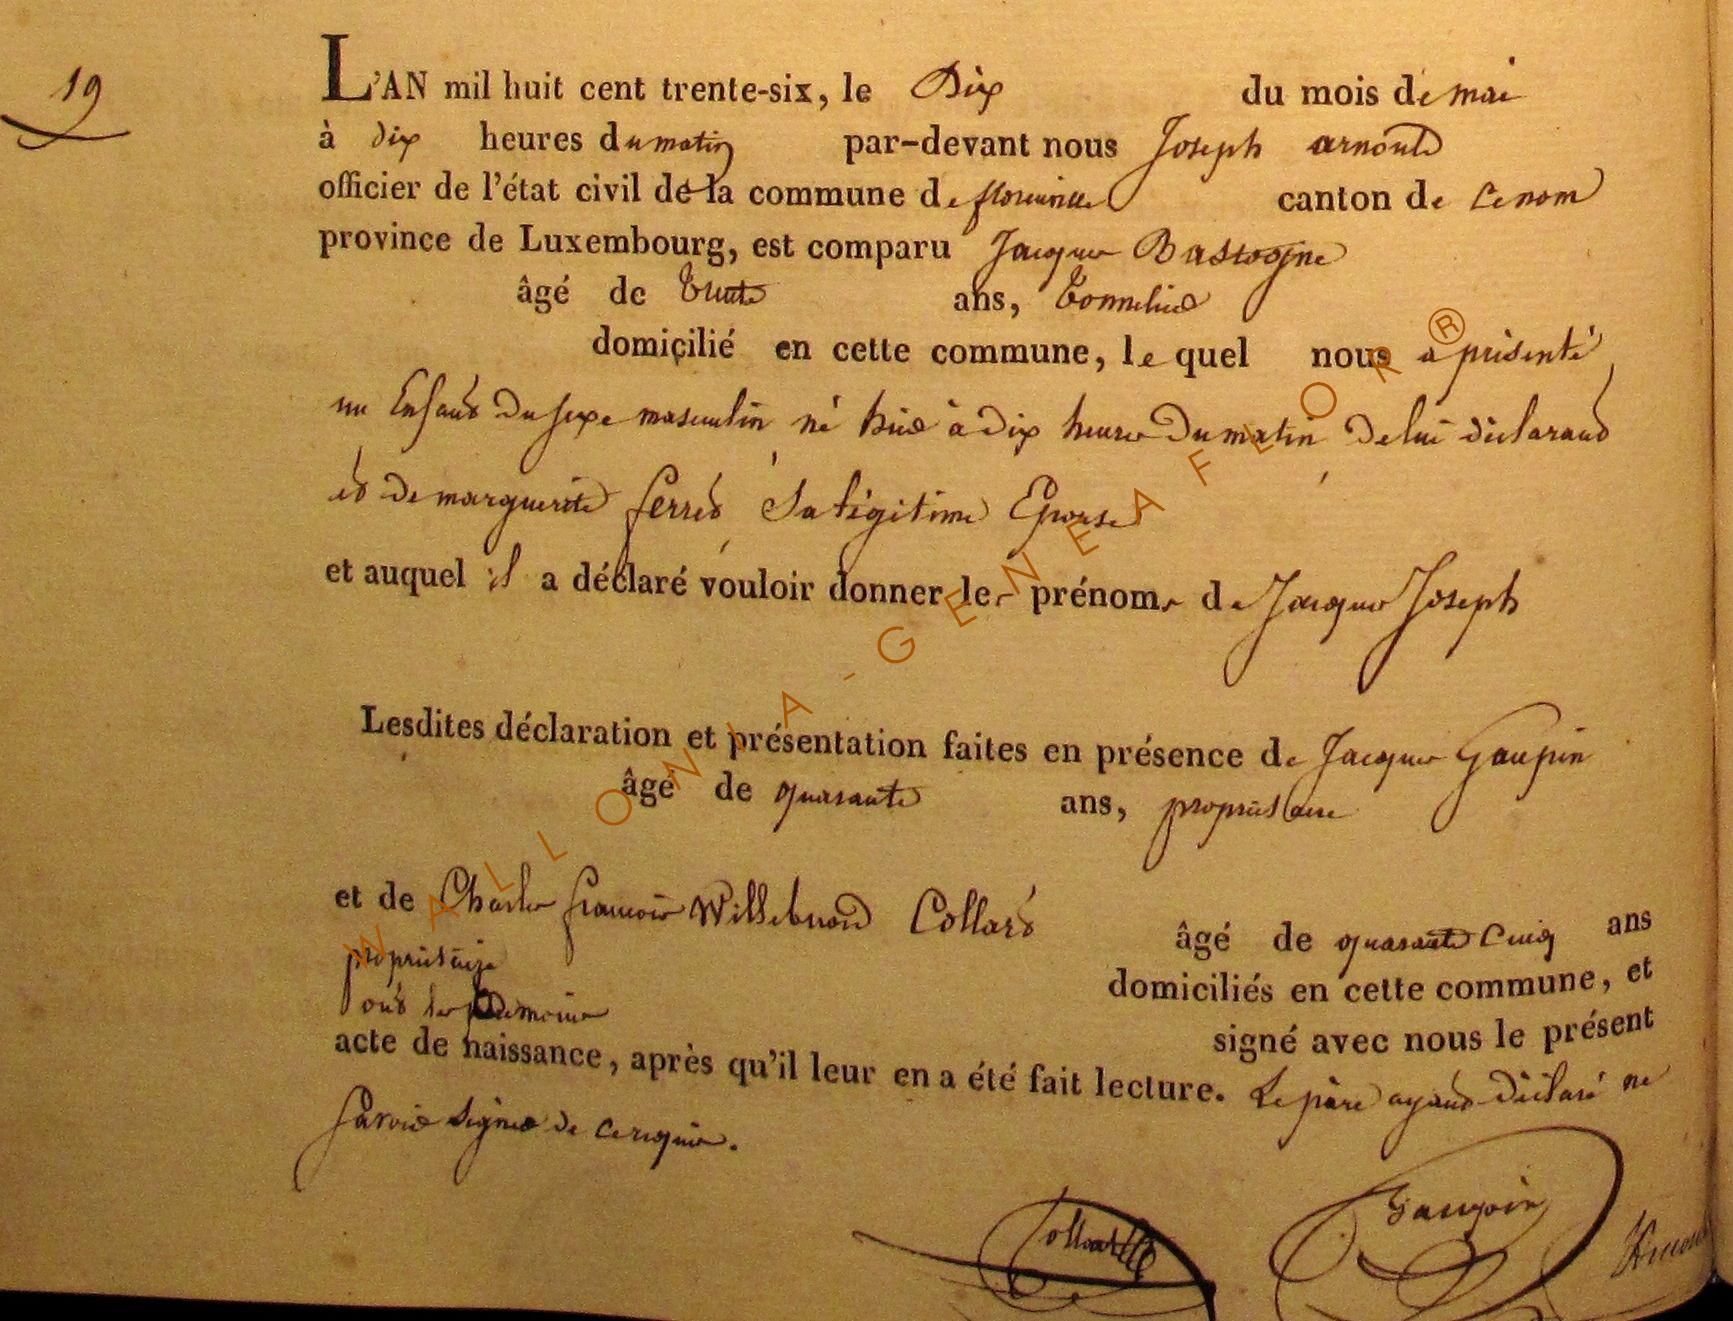 19
L'AN mil huit cent trente-six, le Dix du mois de mai
à dix heures du matin par-devant nous Joseph arnould
officier de l'état civil de la commune de florenville canton de ce nom
province de Luxembourg, est comparu Jacques Bastogne
âgé de trente ans, tonnelier
domicilié en cette commune, le quel nous a présenté
un Enfant du sexe masculin né hier à dix heures du matin de lui déclarant
et de marguerite ferret Sa légitime Epouse
et auquel il a déclaré vouloir donner les prénoms de Jacques Joseph
Lesdites déclaration et présentation faites en présence de Jacques Gaupin
âgé de quarante ans, propriétaire
et de Charles françois Willebrord Collard âgé de quarante cinq ans
propriétaire domiciliés en cette commune, et
ont les témoins signé avec nous le présent
acte de naissance, après qu'il leur en a été fait lecture. Le père ayant déclaré ne
savoir signer de ce requis.
Collard Gaupin
WALLONIA-GENEAFLOR®